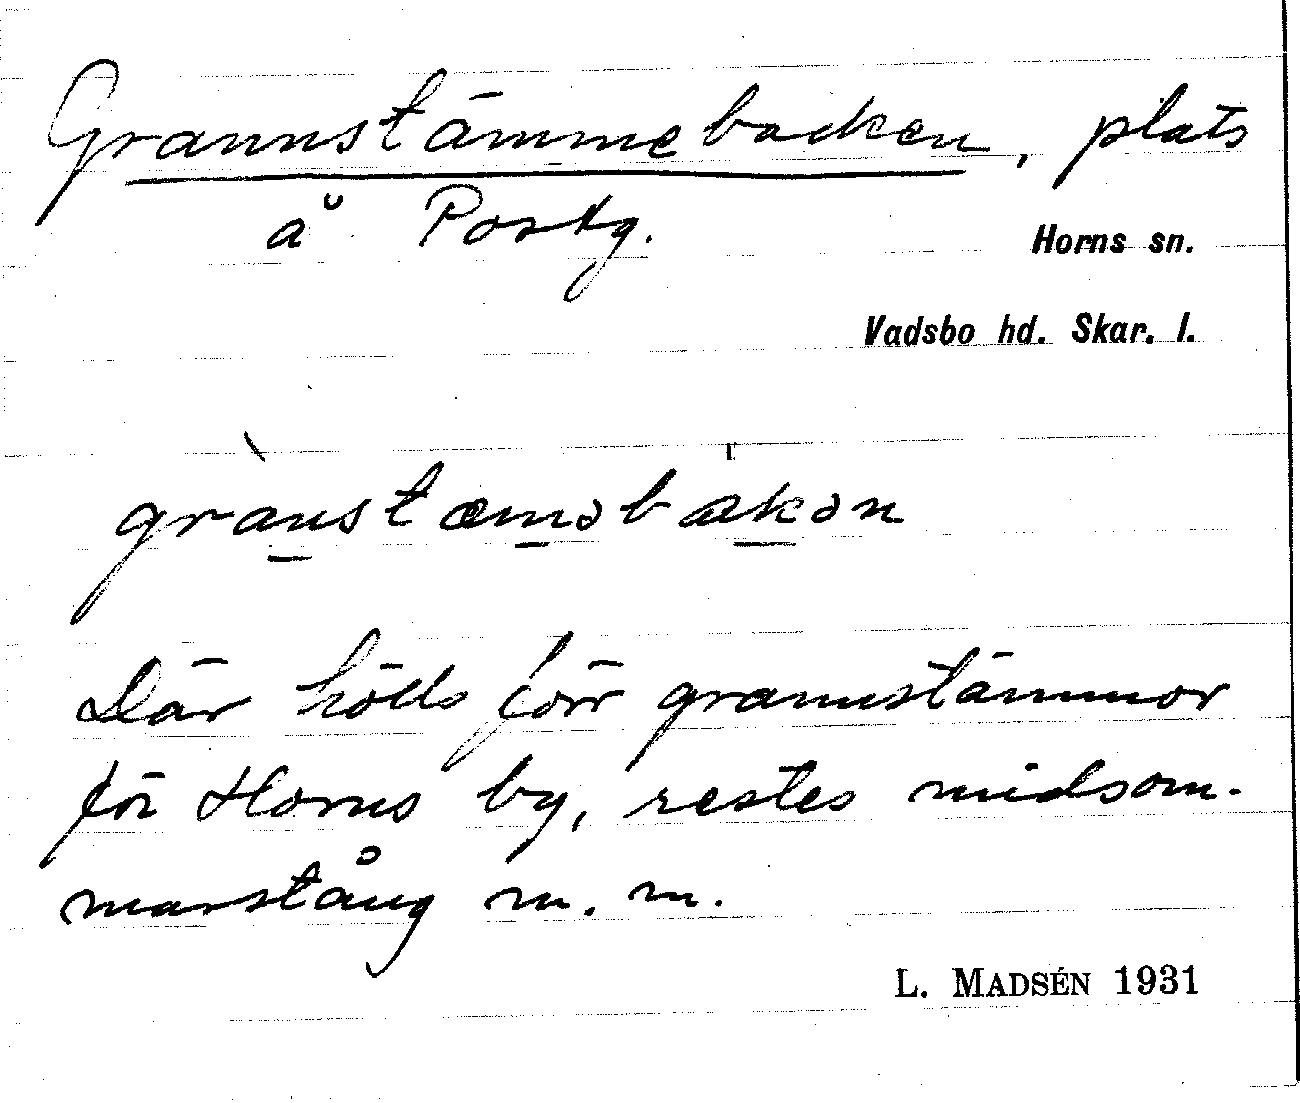 Grannstämmebacken, plats
å Postg.
Horns sn.
Vadsbo hd. Skar. l.
grànstæməbakən
Där hölls förr grannstämmor
för Horns by, restes midsom-
marstång m. m.
L. MADSÉN 1931